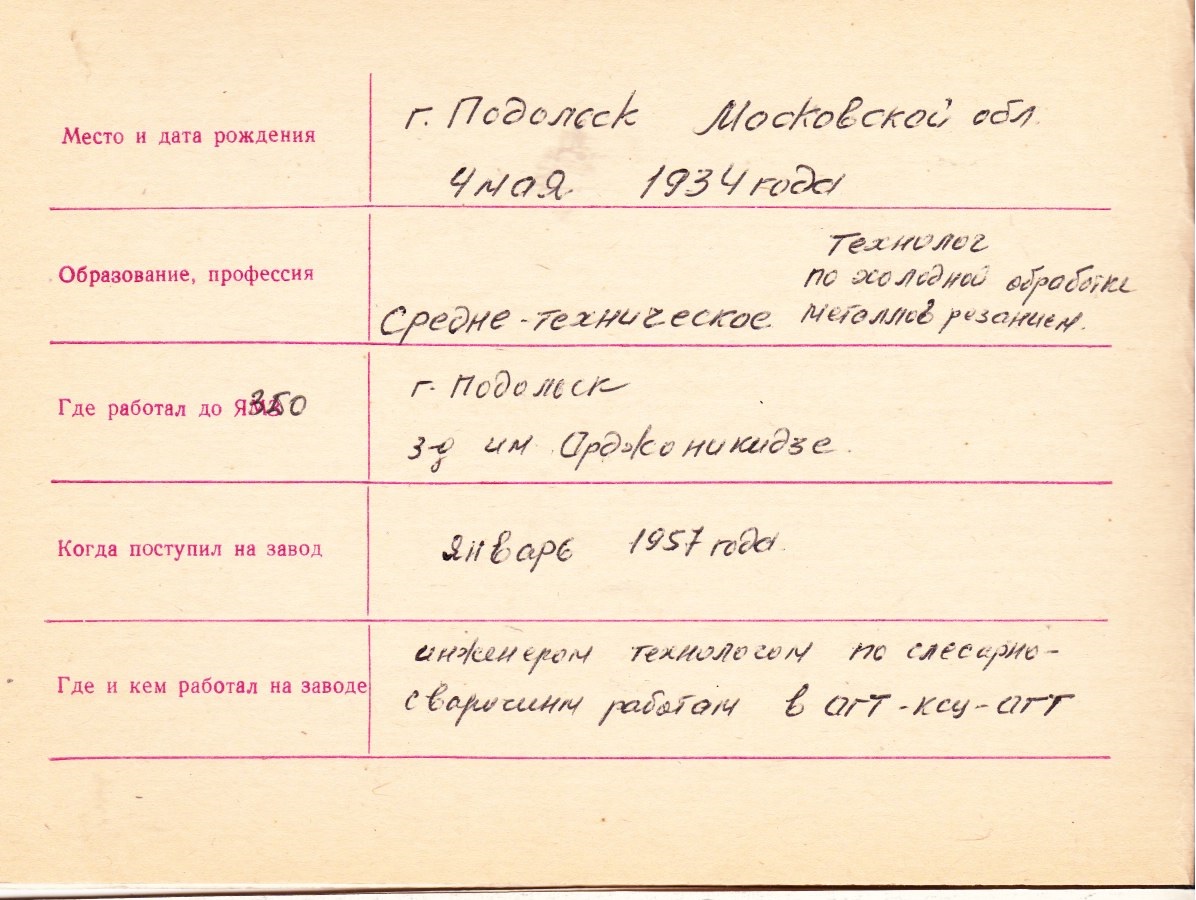 Место и дата рождения
г. Подольск Московской обл.
4 мая 1934 года
Образование, профессия
Средне-техническое
технолог
по холодной обработке
металлов резанием.
Где работал до
г. Подольск
з-д им Орджоникидзе.
Когда поступил на завод
январь 1957 года.
Где и кем работал на заводе
инженером технологом по слесарно-
сварочным работам в ОГТ-КСЦ-ОГТ